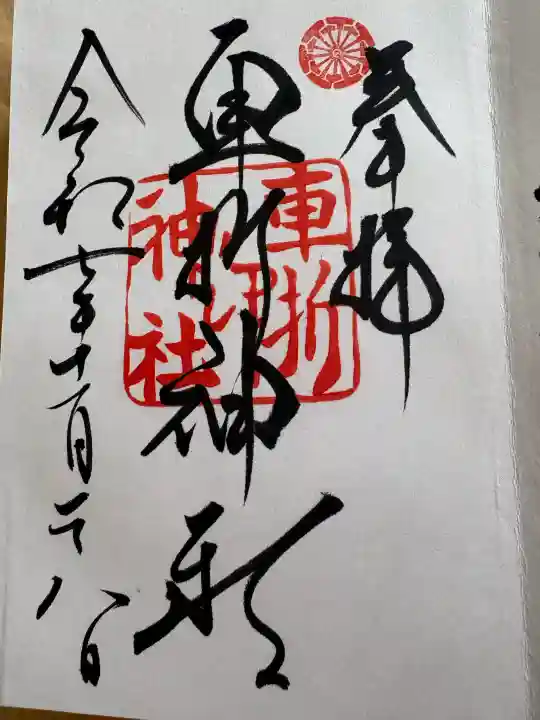 奉拝
車折神社
令和七年十一月二十八日
車折
神社